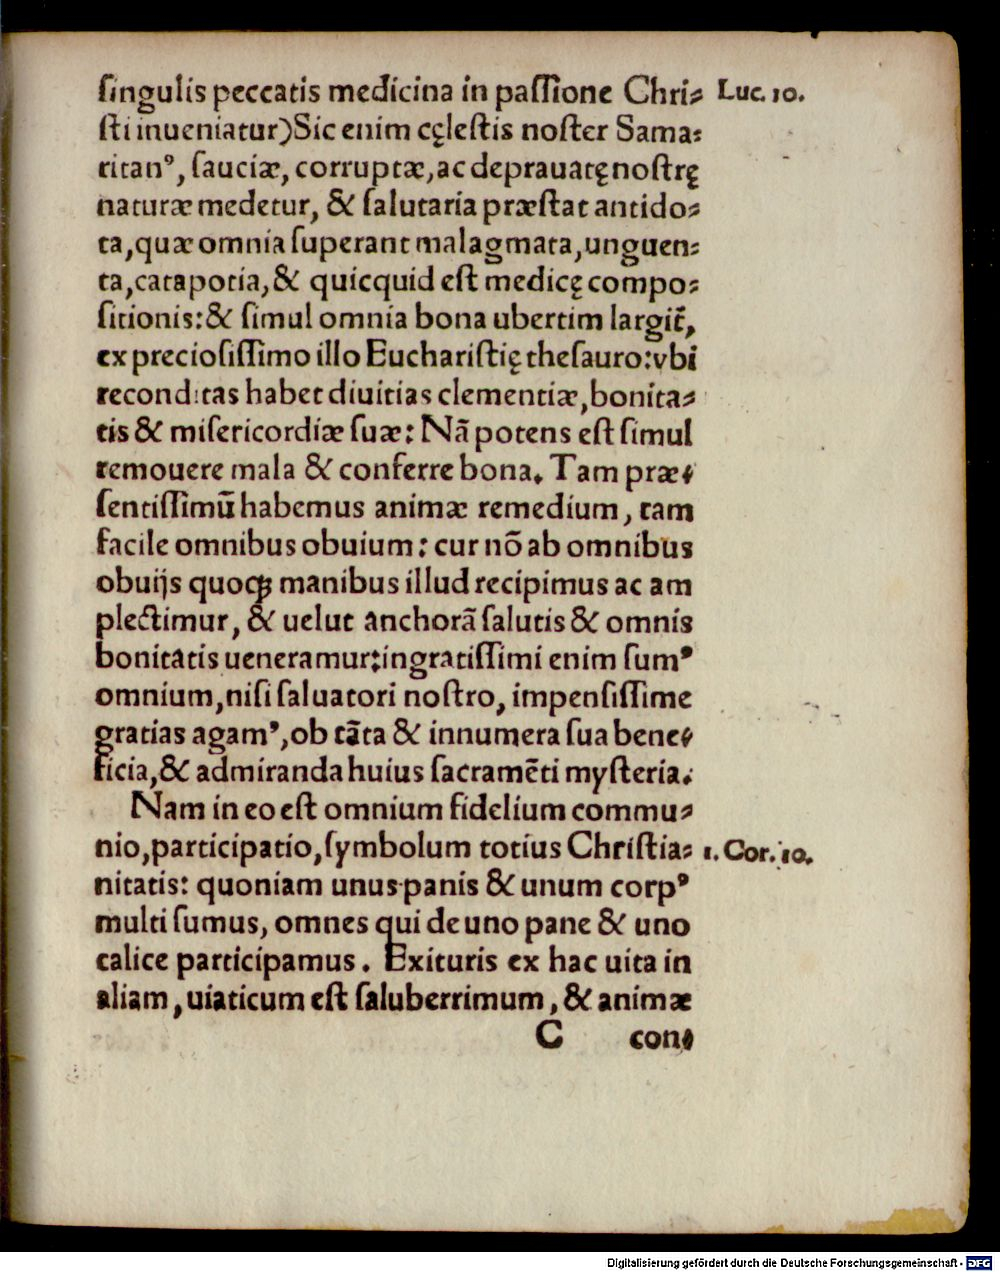 ſingulis peccatis medicina in paſſione Chri⸗ Luc. 10.
ſti inueniatur)Sic enim cęleſtis noſter Sama⸗
ritanꝰ, ſauciæ, corruptæ, ac deprauatę noſtrę
naturæ medetur, & ſalutaria præſtat antido⸗
ta, quæ omnia ſuperant malagmata, unguen⸗
ta, catapotia, & quicquid eſt medicę compo⸗
ſitionis: & ſimul omnia bona ubertim largit̃,
ex precioſiſſimo illo Euchariſtię theſauro: vbi
reconditas habet diuitias clementiæ, bonita⸗
tis & miſericordiæ ſuæ: Nã potens eſt ſimul
remouere mala & conferre bona. Tam præ⸗
ſentiſſimũ habemus animæ remedium, tam
facile omnibus obuium: cur nõ ab omnibus
obuijs quoqꝫ manibus illud recipimus ac am
plectimur, & uelut anchorã ſalutis & omnis
bonitatis ueneramur: ingratiſſimi enim ſumꝰ
omnium, niſi ſaluatori noſtro, impenſiſſime
gratias agamꝰ, ob tãta & innumera ſua bene⸗
ficia, & admiranda huius ſacramẽti myſteria.
Nam in eo eſt omnium fidelium commu⸗
nio, participatio, ſymbolum totius Chriſtia⸗ 1. Cor. 10.
nitatis: quoniam unus panis & unum corpꝰ
multi ſumus, omnes qui de uno pane & uno
calice participamus. Exituris ex hac uita in
aliam, uiaticum eſt ſaluberrimum, & animæ
C con⸗
Digitalisierung gefördert durch die Deutsche Forschungsgemeinschaft - DFG